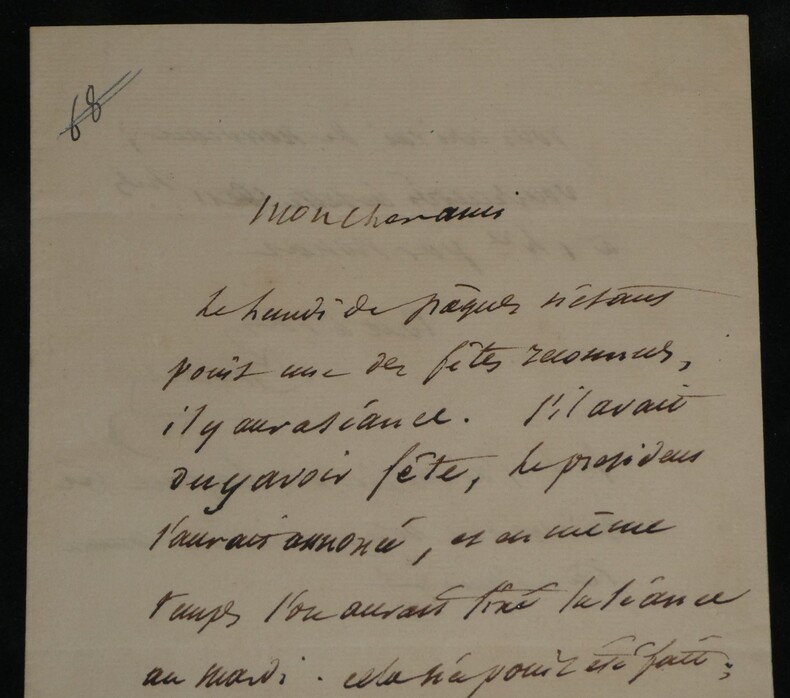 68
Mon cher ami
Le lundi de pâques n'étant
point une des fêtes reconnues,
il y aura séance. S'il avait
du y avoir fête, le président
l'aurait annoncé, et en même
temps l'on aurait fixé la séance
au mardi. cela n'a point été fait;